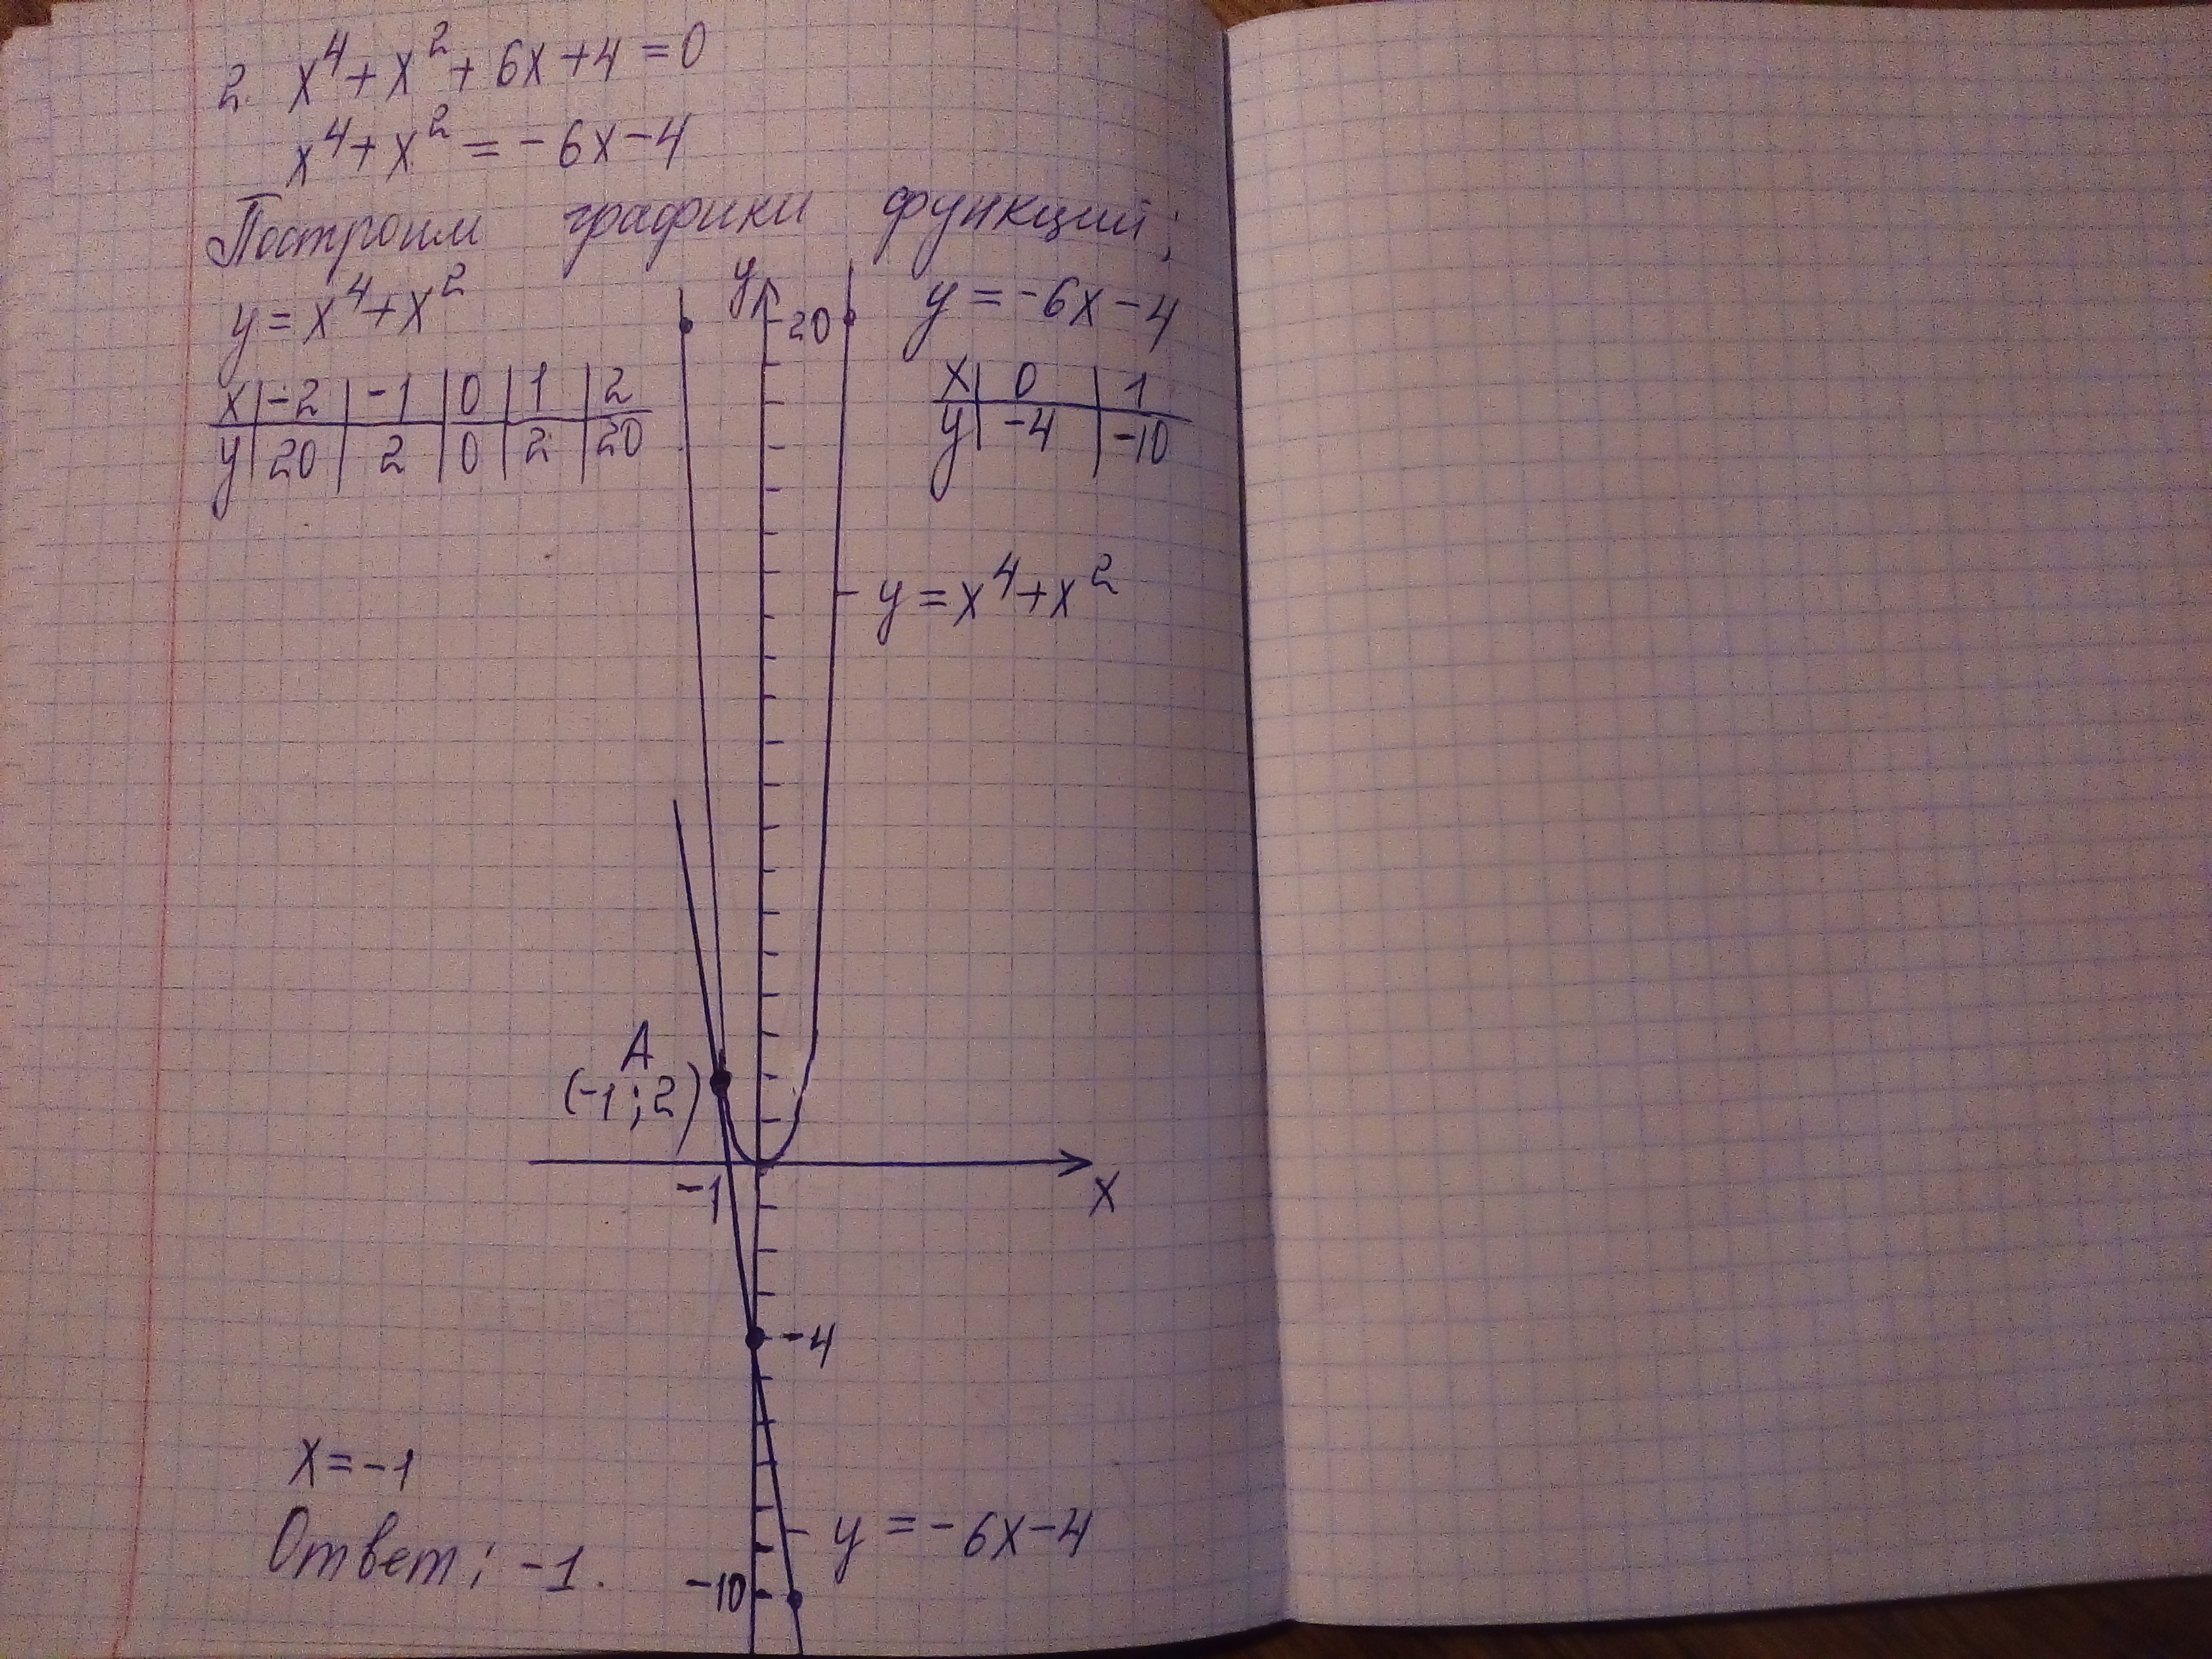 2. x⁴+x²+6x+4=0
x⁴+x²=-6x-4
Построим графики функций:
y=x⁴+x²
x | -2 | -1 | 0 | 1 | 2
y | 20 | 2 | 0 | 2 | 20
y
20
y=-6x-4
x | 0 | 1
y | -4 | -10
y=x⁴+x²
A
(-1;2)
-1
x
-4
x=-1
y=-6x-4
Ответ: -1.
-10